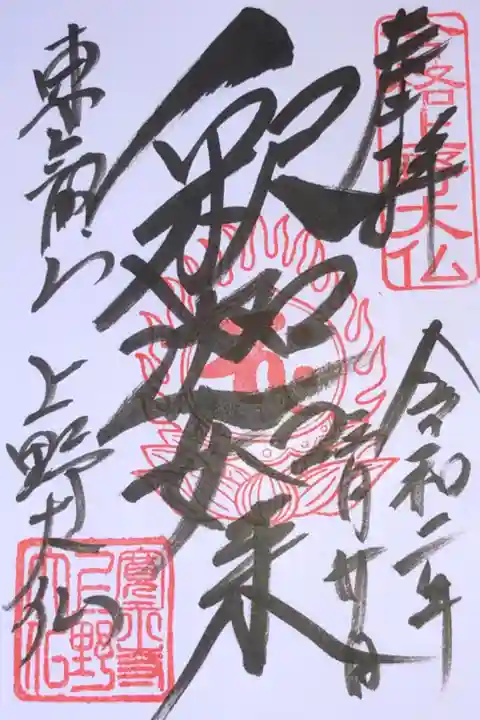 奉拝
合格上野大仏
令和二年
睦月廿日
釈迦如来
東叡山 上野大仏
寛永寺
上野
大仏